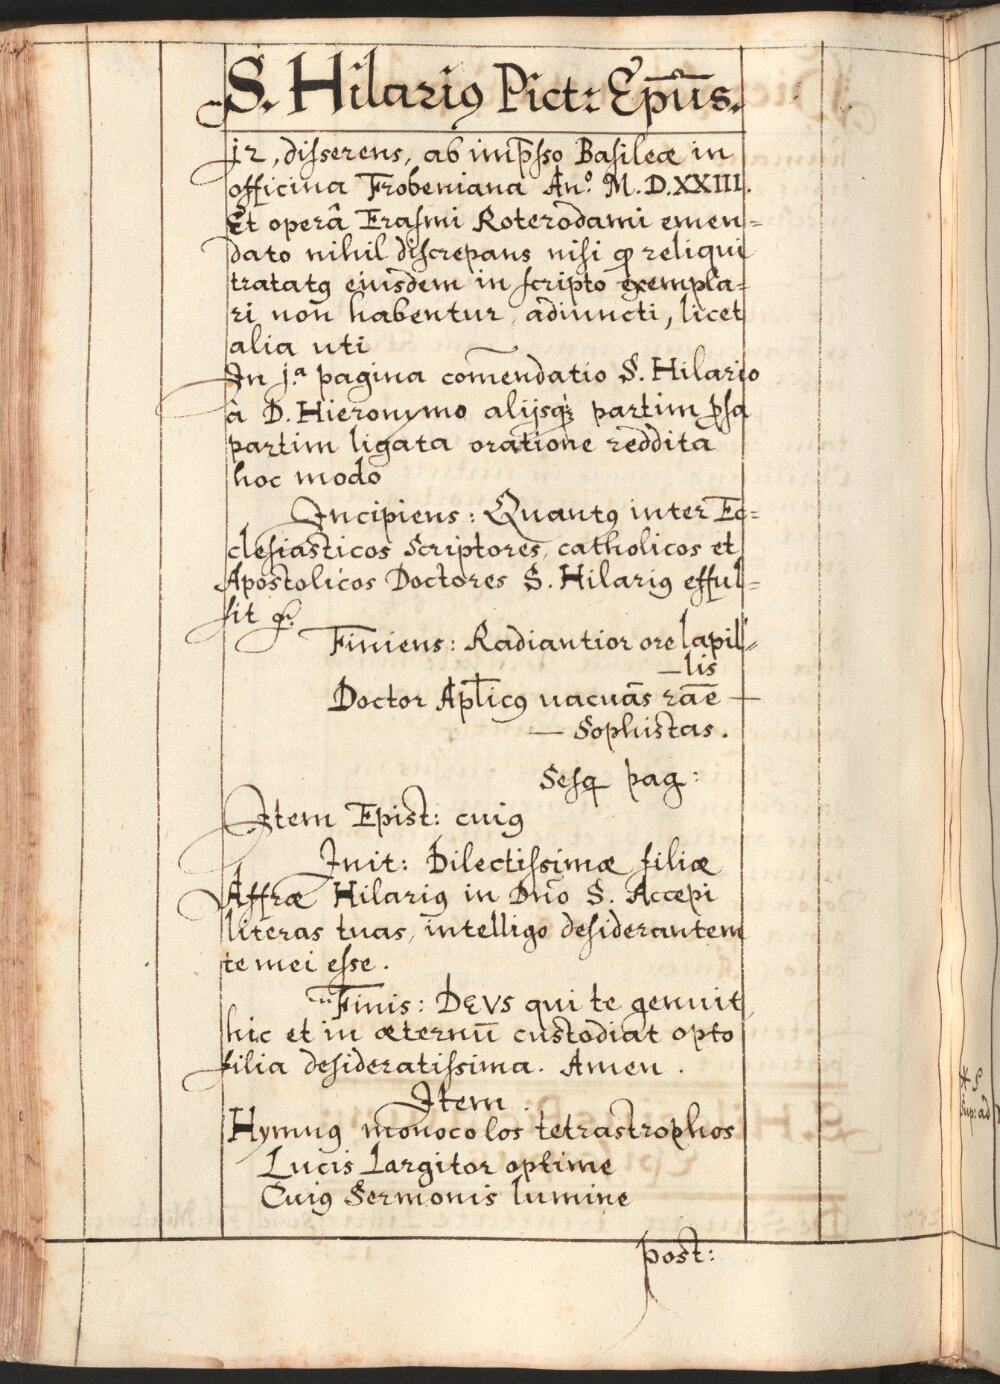 S. Hilariꝯ Pict: Ep̄us.
12, diſserens, ab imp̄ſso Baſileæ in
officina Frobeniana An.º M.D.XXIII.
Et operâ Eraſmi Roterodami emen=
dato nihil diſcrepans niſi ꝙ reliqui
tratatꝯ eiusdem in ſcripto exempla=
ri non habentur adiuncti, licet
alia uti
In j.ª pagina com̄endatio S. Hilario
à D. Hieronymo alijsqꝫ partim ꝓſa
partim ligata oratione reddita
hoc modo
Incipiens: Quantꝯ inter Ec=
cleſiasticos Scriptores, catholicos et
Apostolicos Doctores S. Hilariꝯ efful=
ſit
Finiens: Radiantior ore lapil=
—lis
Doctor Ap̄licꝯ uacuās rāe —
— Sophistas.
Seſq pag:
Item Epist: cuiꝯ
Init: Dilectiſsimæ filiæ
Affræ Hilariꝯ in Dn̄o S. Accepi
literas tuas, intelligo deſiderantem
te mei eſse.
Finis: DEVS qui te genuit
hic et in æternū custodiat opto
filia deſideratiſsima. Amen.
Item.
Hymnꝯ monocolos tetrastrophos
Lucis Largitor optime
Cuiꝯ Sermonis lumine
post:
* S
Sup: ad